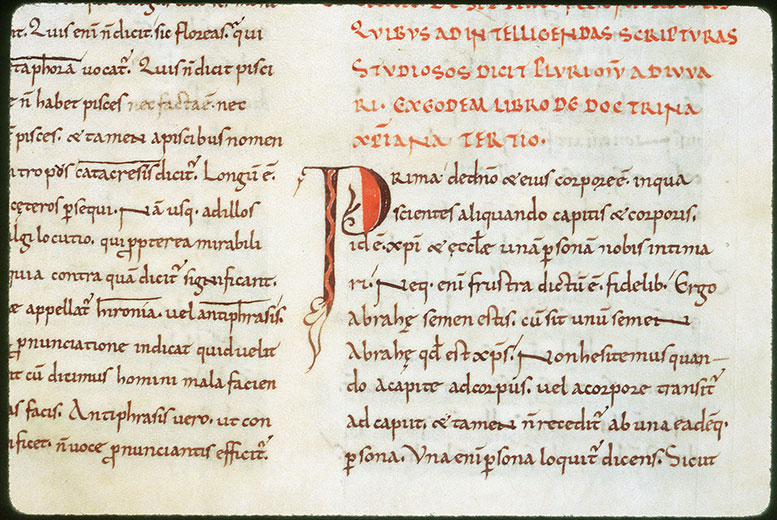 nt. Quis enī n̄ dicit. sic floreas. qui
taphora vocat᷑. Quis n̄ dicit pisci
ē n̄ habet pisces nec facta ē. nec
pisces. & tamen apiscibus nomen
tropos catacresis dicit᷑. Longū ē.
cęteros ꝑsequi. Nā usq. adillos
lgi locutio. qui ꝓpterea mirabili
quia contra quā dicit᷑ significant.
æ appellat᷑ hironia. vel antiphrasis.
ꝓnunciatione indicat quid uelit
cū dicimus homini mala facien
as facis. Antiphrasis vero. ut con
ificet. n̄ voce ꝓnunciantis efficit᷑.
QUIBUS AD INTELLIGENDAS SCRIPTURAS
STUDIOSOS DICIT PLURIMŪ ADIUVA
RI. EX EODEM LIBRO DE DOCTRINA
XP̄IANA TERTIO.
Prima de dn̄o & eius corpore ē. inqua
scientes aliquando capitis & corporis.
id ē. xp̄i & ęccłæ unā ꝑsonā nobis intima
ri. Neq. enī frustra dictū ē. fidelib. Ergo
Abrahę semen estis. cū sit unū semen
Abrahę qd̄ est xp̄s. Non hesitemus quan-
do acapite adcorpus. uel acorpore transit᷑
ad caput. & tamen n̄ recedit᷑ ab una eadeq.
ꝑsona. Una enī ꝑsona loquit᷑ dicens. Sicut